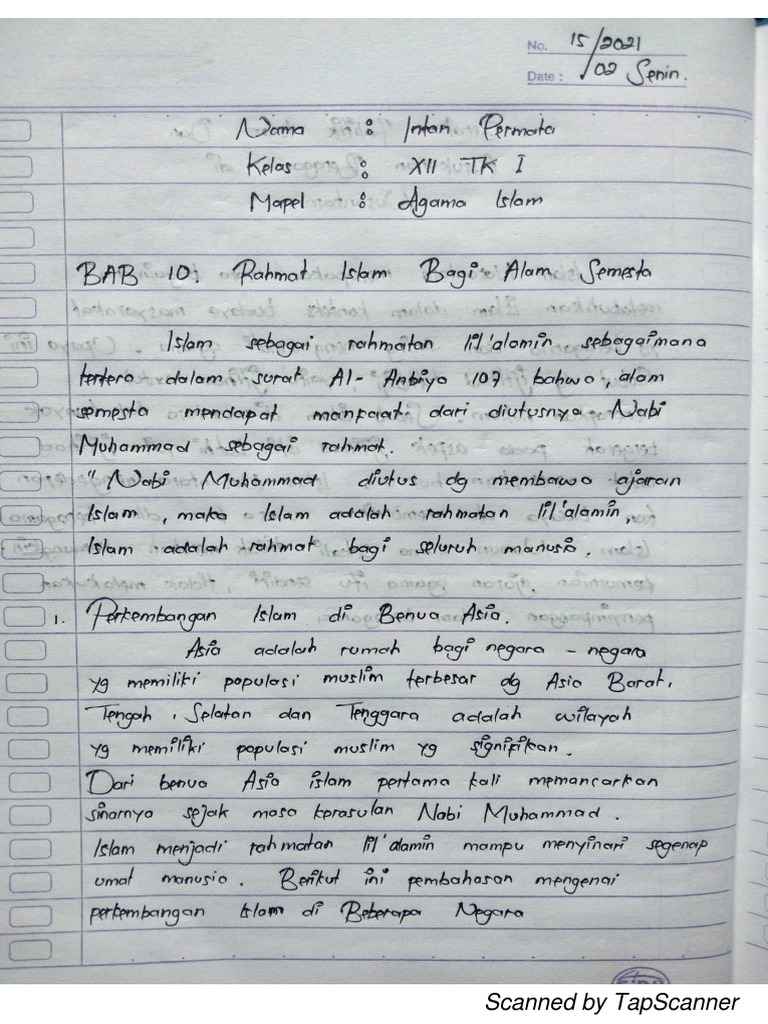 No. 15/2021
Date : /02 Senin.
Nama : Intan Permata
Kelas : XII TK I
Mapel : Agama Islam
BAB 10: Rahmat Islam Bagi Alam Semesta
Islam sebagai rahmatan lil'alamin sebagaimana
tertera dalam surat Al-Anbiya 107 bahwa, alam
semesta mendapat manfaat dari diutusnya Nabi
Muhammad sebagai rahmat.
"Nabi Muhammad diutus dg membawa ajaran
Islam, maka Islam adalah rahmatan lil'alamin,
Islam adalah rahmat bagi seluruh manusia.
1. Perkembangan Islam di Benua Asia.
Asia adalah rumah bagi negara - negara
yg memiliki populasi muslim terbesar dg Asia Barat,
Tengah, Selatan dan Tenggara adalah wilayah
yg memiliki populasi muslim yg signifikan.
Dari benua Asia islam pertama kali memancarkan
sinarnya sejak masa kerasulan Nabi Muhammad.
Islam menjadi rahmatan lil'alamin mampu menyinari segenap
umat manusia. Berikut ini pembahasan mengenai
perkembangan Islam di Beberapa Negara
Scanned by TapScanner